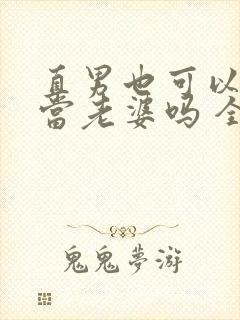 直男也可以
当老婆吗 全
鬼鬼夢游